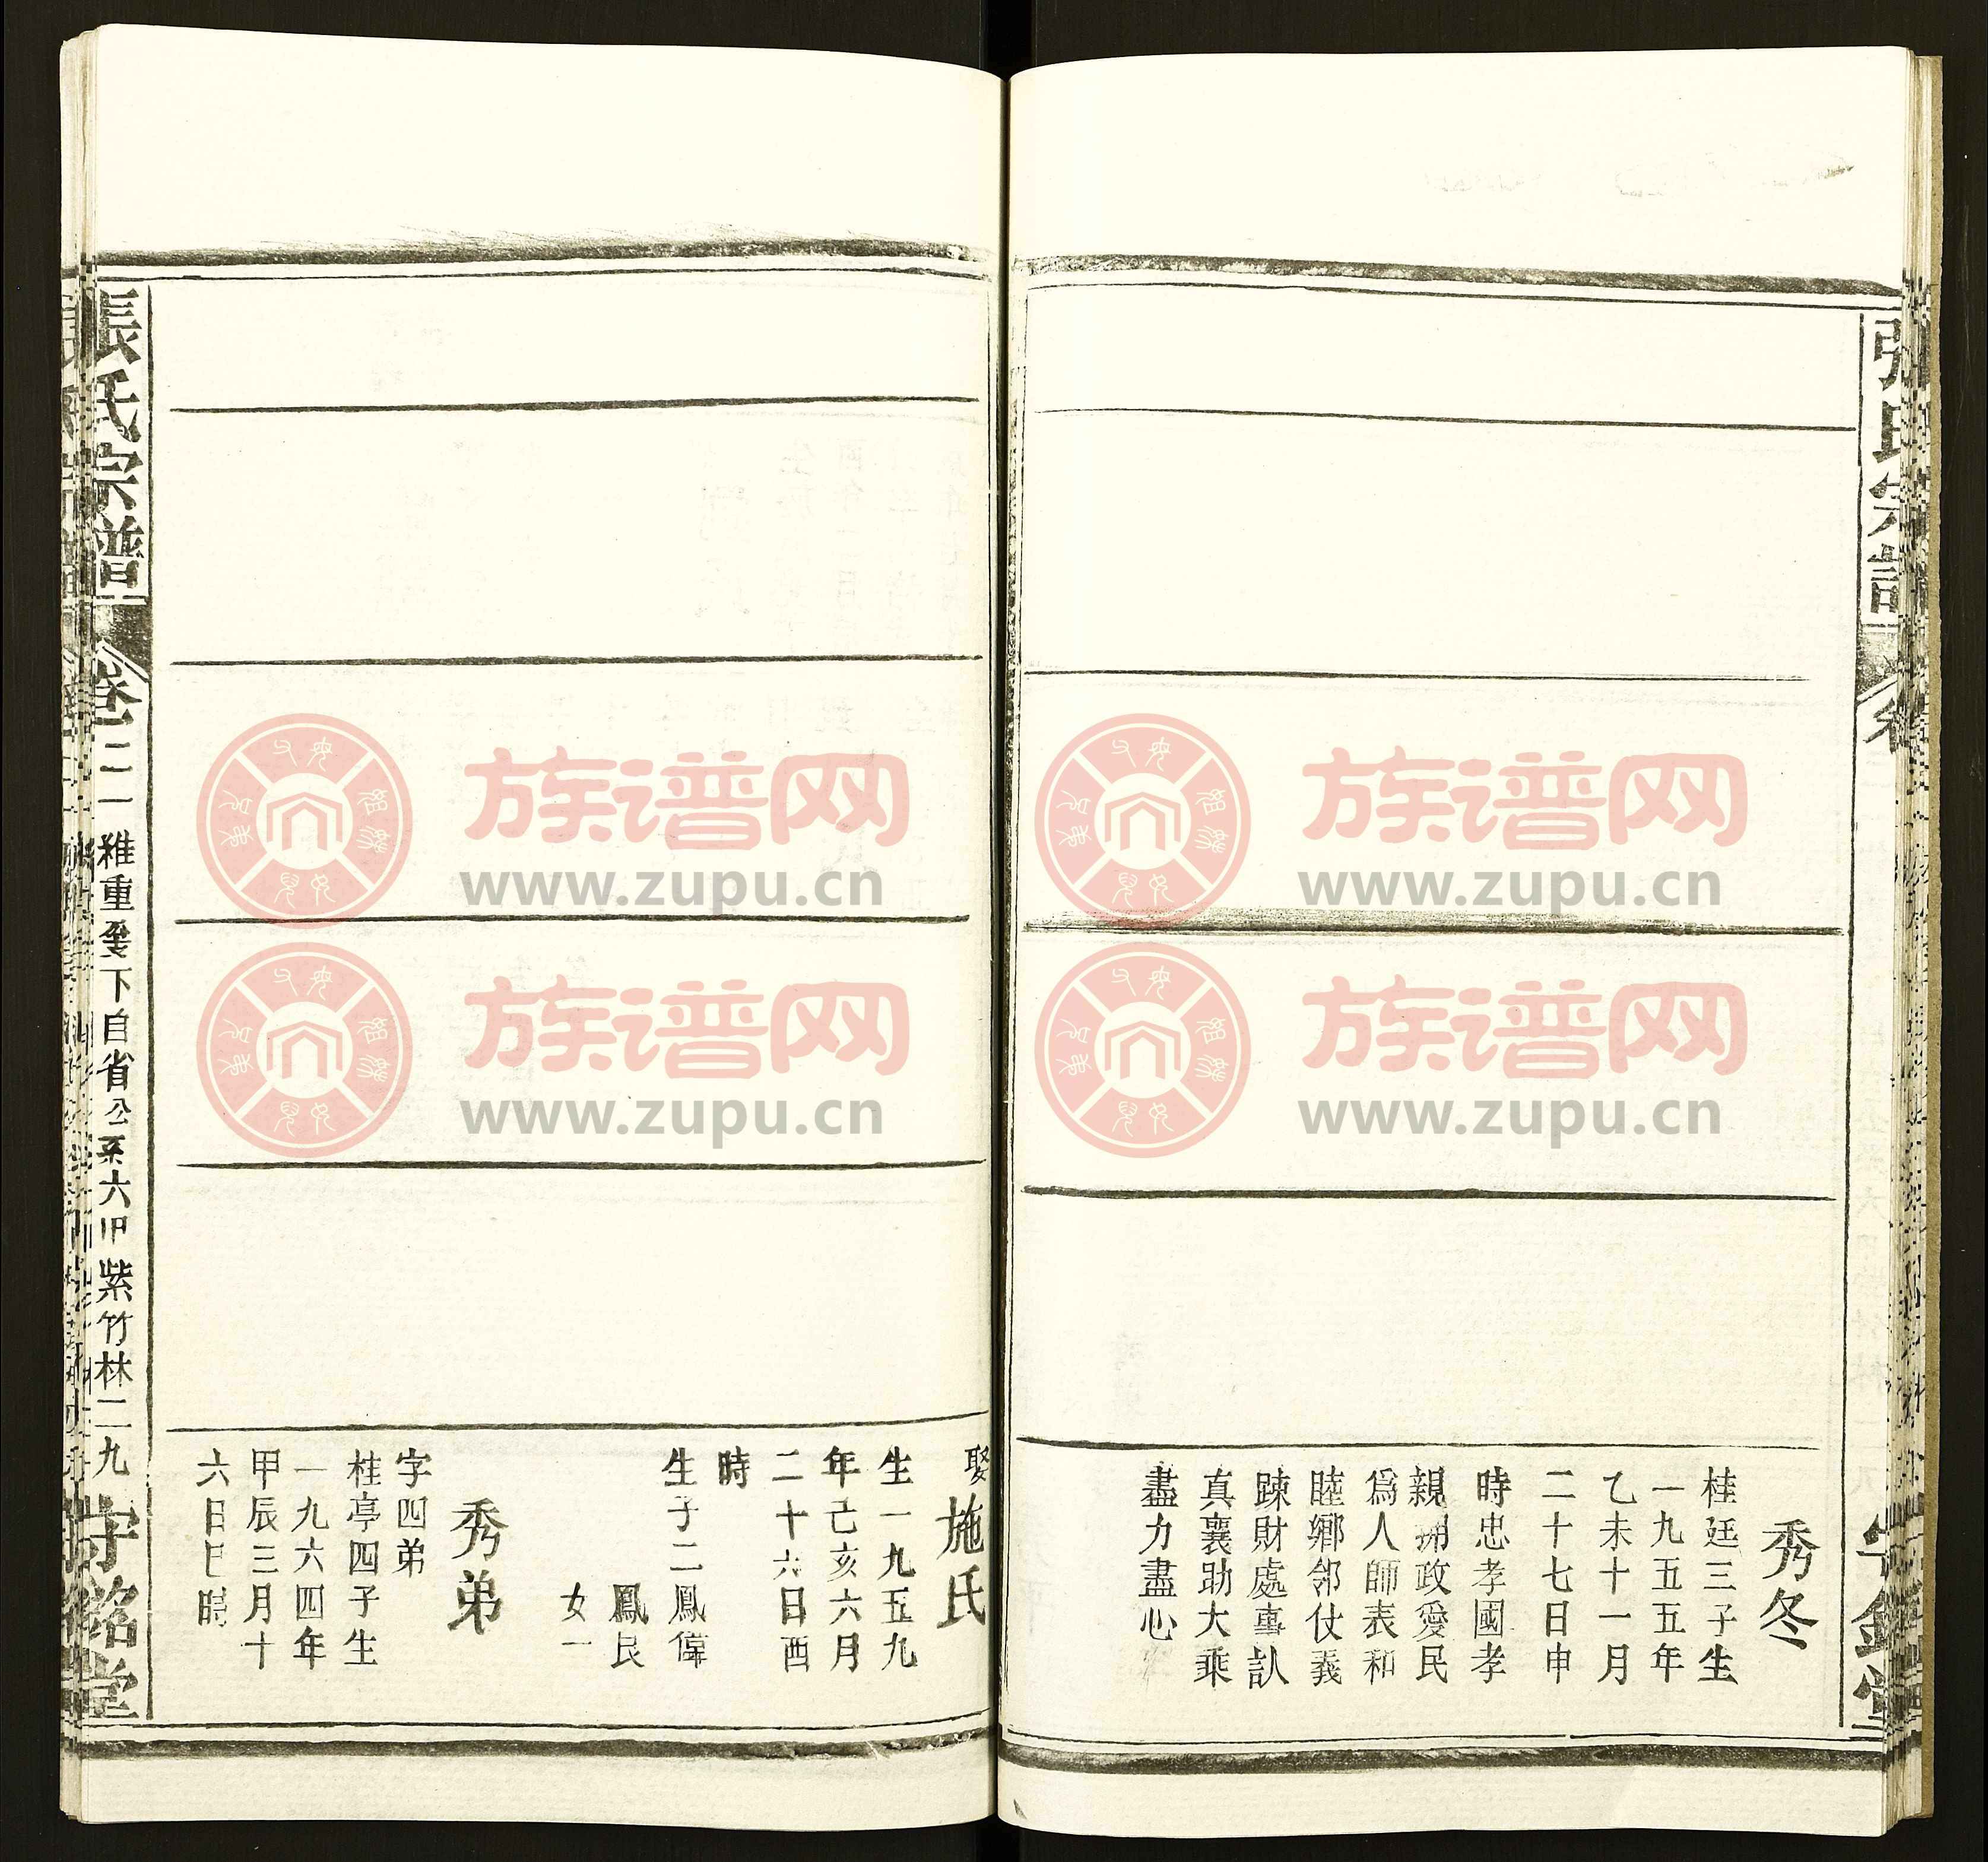 秀冬
桂廷三子生
一九五五年
乙未十一月
二十七日申
時忠孝國孝
親擁政愛民
爲人師表和
睦鄉邻仗義
踈財處事認
真襄助大乘
盡力盡心
娶施氏
生一九五九
年己亥六月
二十六日酉
時
生子二鳳偉
鳳良
女一
秀弟
字四弟
桂亭四子生
一九六四年
甲辰三月十
六日巳時
張氏宗譜
卷二二
稚重
下自省公系六甲
紫竹林二九
守銘堂
族谱网
www.zupu.cn
族谱网
www.zupu.cn
族谱网
www.zupu.cn
族谱网
www.zupu.cn